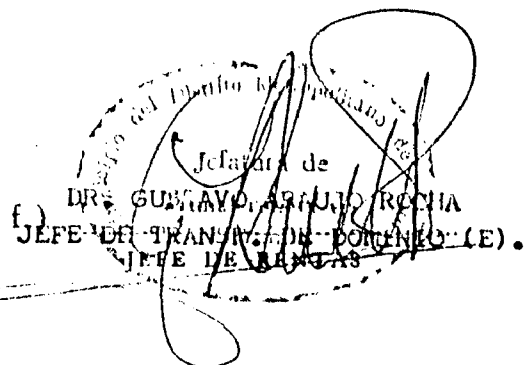 del Distrito Metropolitano de
Jefatura de
DR. GUSTAVO ARAUJO ROCHA
f.)
JEFE DE TRANSF. DE DOMINIO (E).
JEFE DE RENTAS